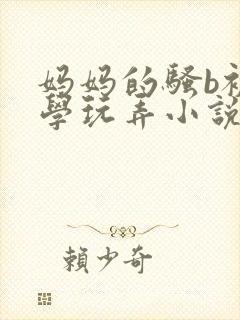 妈妈的骚b被
學玩弄小說
賴少奇